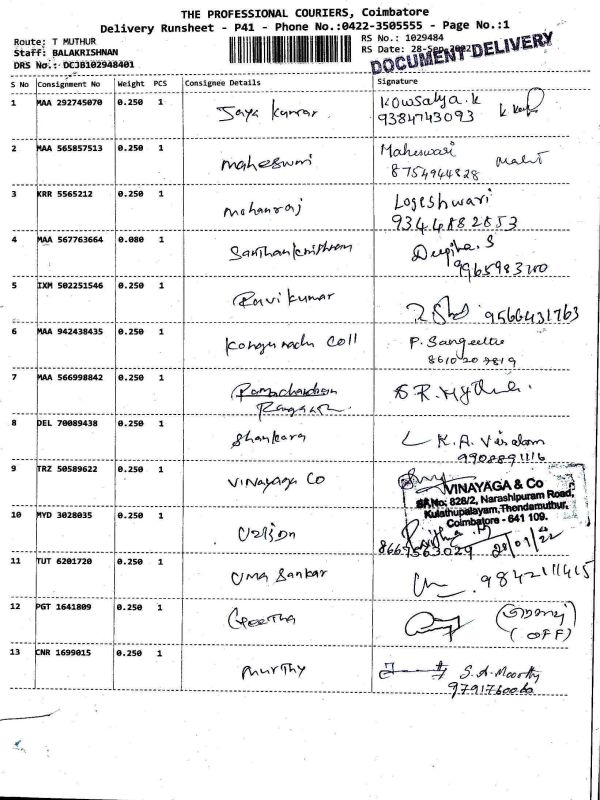 THE PROFESSIONAL COURIERS, Coimbatore
Delivery Runsheet - P41 - Phone No.:0422-3505555 - Page No.:1
Route: T MUTHUR
RS No.: 1029484
Staff: BALAKRISHNAN
RS Date: 28-Sep-2022
DRS No.: DCJB102948401
DOCUMENT DELIVERY
S No Consignment No Weight PCS Consignee Details Signature
1 MAA 292745070 0.250 1 Jaya Kumar Kowsalya.k
9384743093
2 MAA 565857513 0.250 1 Maheswari Maheswari
8754944828
3 KRR 5565212 0.250 1 Mohanraj Logeshwari
9344882853
4 MAA 567763664 0.080 1
5 IXM 502251546 0.250 1 Ravikumar 9566431763
6 MAA 942438435 0.250 1 Kongunadu Coll P. Sangeetha
7 MAA 566998842 0.250 1 Ramachandran R. Mythili.
8 DEL 70089438 0.250 1 Shankara K.A. Visalam
9908891116
9 TRZ 50589622 0.250 1 VINAYAGA CO
VINAYAGA & Co
SF.No: 828/2, Narashipuram Road,
Kulathupalayam, Thendamuthur,
Coimbatore - 641 109.
10 MYD 3028035 0.250 1
8667563029
11 TUT 6201720 0.250 1 UMA Sankar 9842111415
12 PGT 1641809 0.250 1 Geetha
(OFF)
13 CNR 1699015 0.250 1 Murthy S.A. Moorthy
9791760060